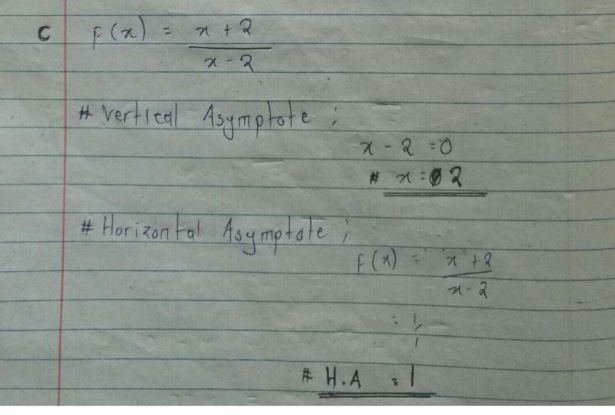 c f(x) = x + 2
x - 2
# Vertical Asymptote ;
x - 2 = 0
# x = 2
# Horizontal Asymptote ;
f(x) = x + 2
x - 2
= 1
1
# H.A = 1